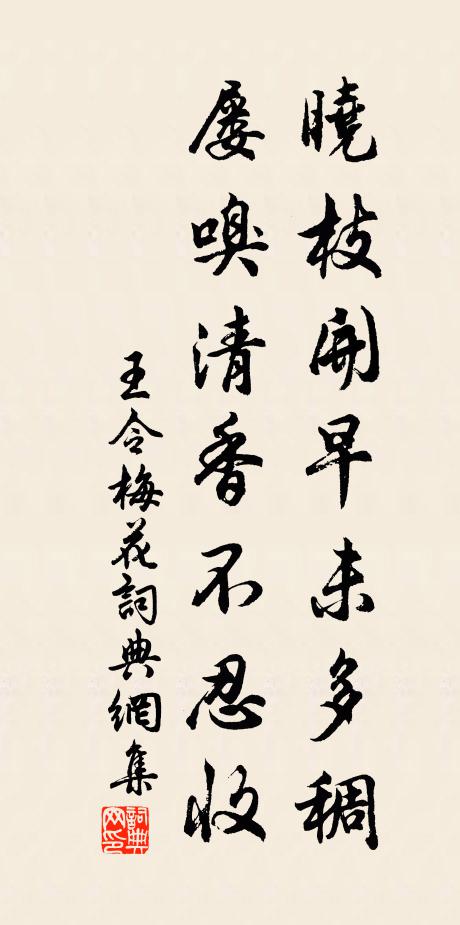 曉枝開早未多稠
屢嗅清香不忍收
王令梅花詞典網集
詞典網印